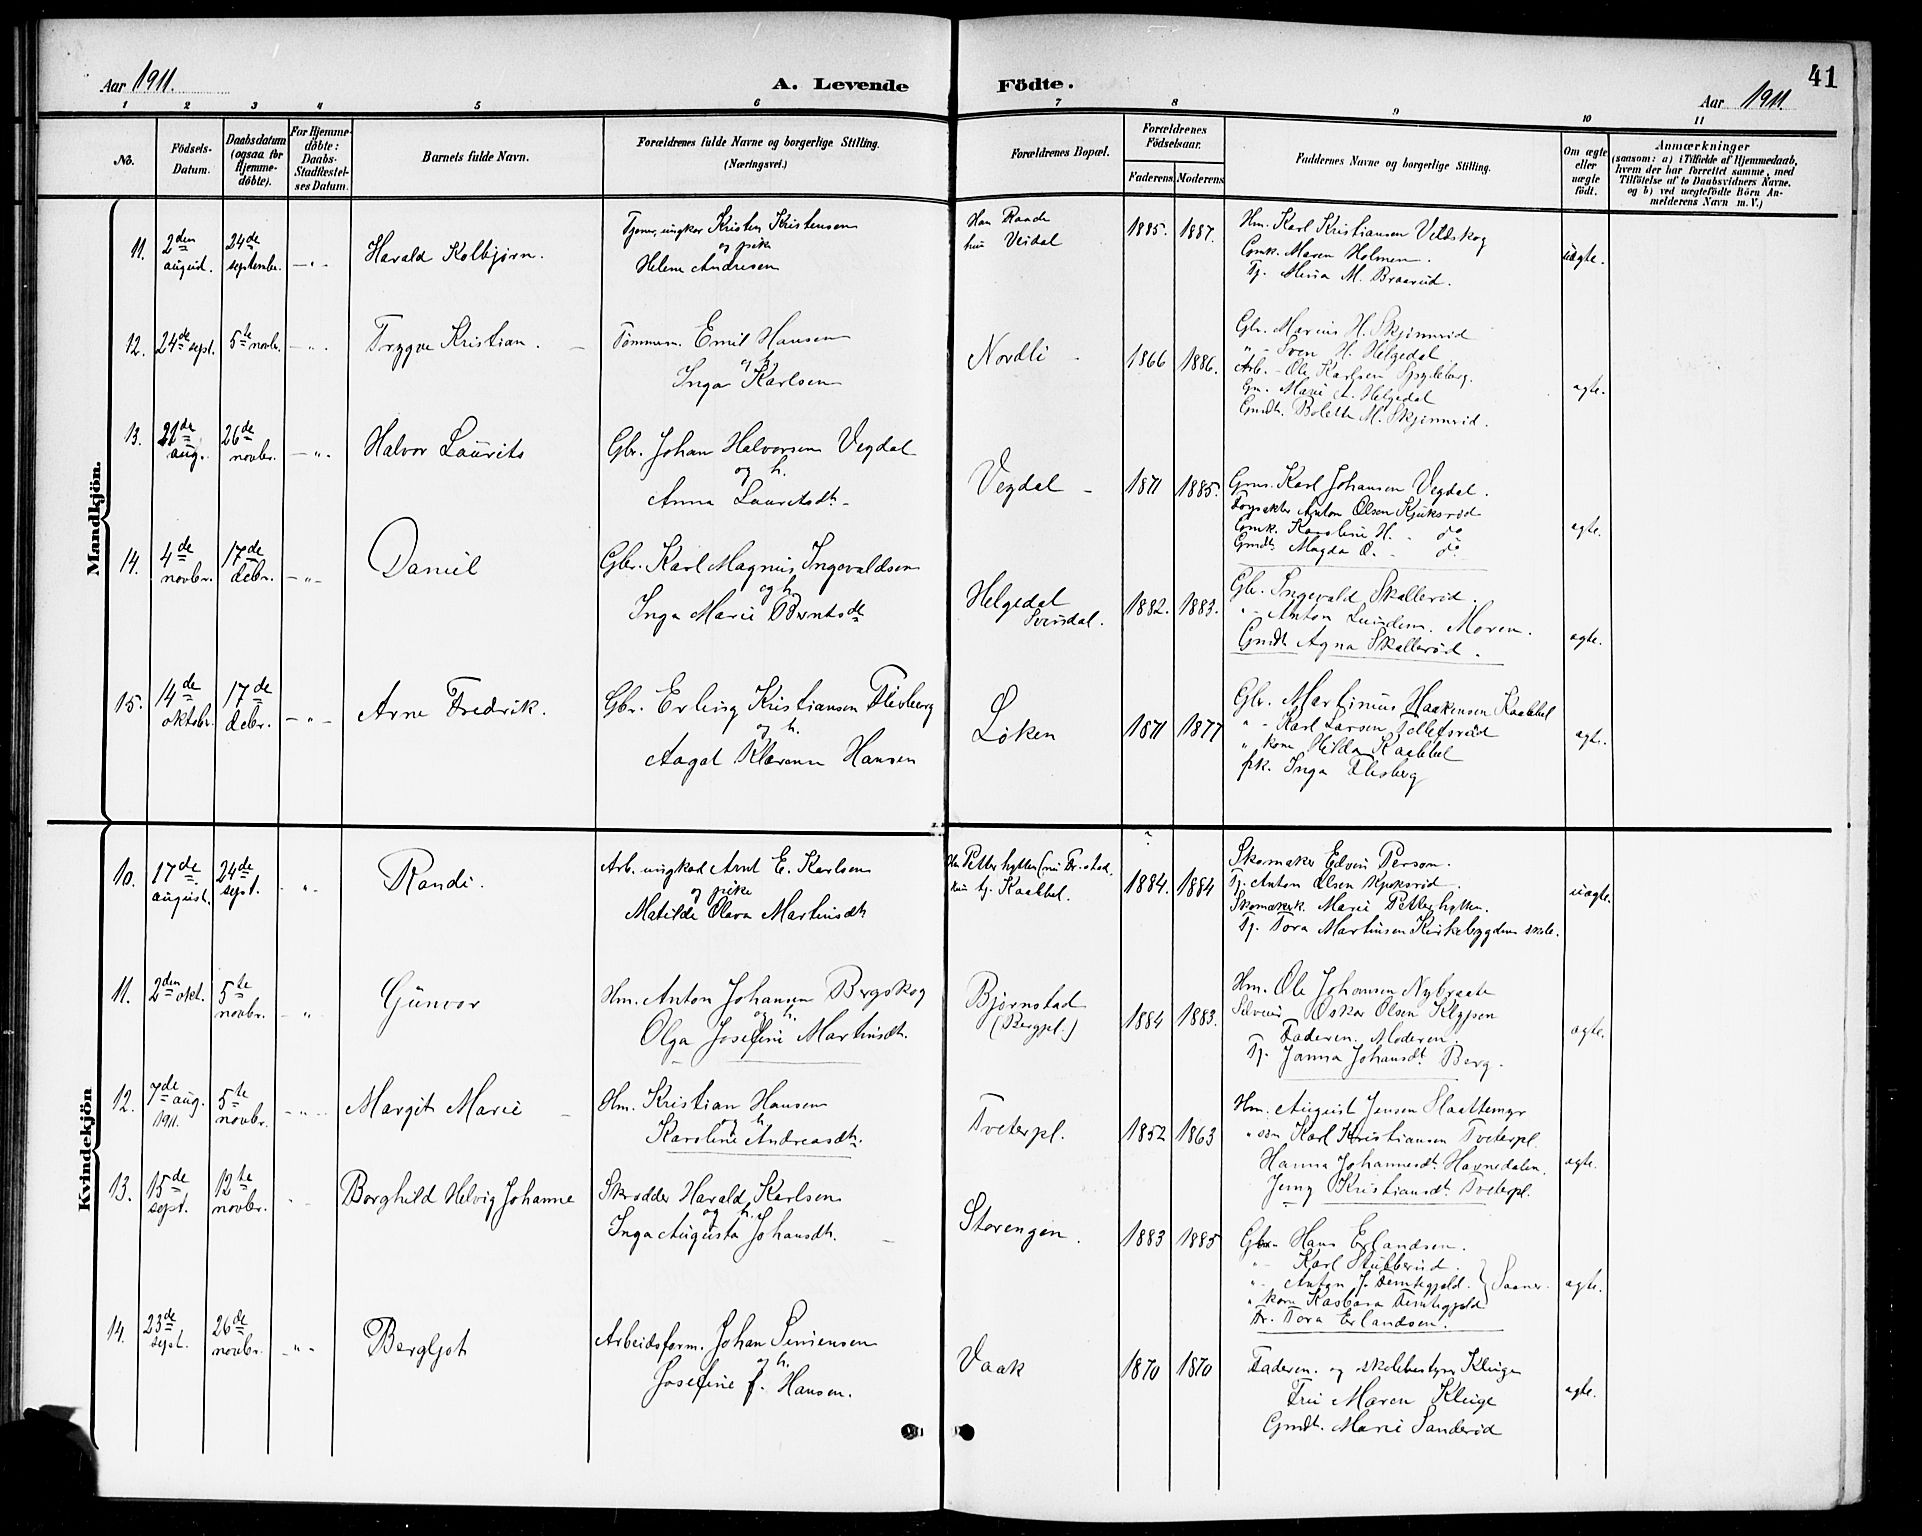 Aar 1911. A. Levende Födte. Aar 1911. 41
1 2 3 4 5 6 7 8 9 10 11
No.
Födsels-Datum.
Daabsdatum (ogsaa for Hjemme-döbte).
For Hjemme-döbte: Daabs-Stadfæstel-ses Datum.
Barnets fulde Navn.
Forældrenes fulde Navne og borgerlige Stilling. (Næringsvei.)
Forældrenes Bopæl.
Forældrenes Födselsaar.
Faderens. Moderens.
Faddernes Navne og borgerlige Stilling.
Om ægte eller uægte födt.
Anmærkninger
(saasom: a) i Tilfælde af Hjemmedaab,
hvem der har forrettet samme, med
Tilföielse af to Daabsvidners Navne.
og b) ved uægtefödte Börn An-
melderens Navn m. V.)
Mandkjön.
11. 2den august. 24de septembr. — " - Harald Kolbjørn.
Tjener, ungkar Kristen Kristensen
og pike
Helene Andresen
Han Raade
hun Veidal
1885. 1887.
Hm. Karl Kristiansen Veldskog
Gmk. Maren Holmen.
Tj. Mina M. Braarud.
uægte.
12. 24de sept. 5te novbr. — " - Trygve Kristian.
Tømmerm. Emil Hansen
og h.
Inga Karlsen
Nordli
1866 1886.
Gbr. Marius H. Skjennrid
" - Sven H. Helgedal
Arb. - Ole Karlsen Spydeberg.
Gm. Marie A. Helgedal
Gmdt. Bolette M. Skjennrid.
ægte.
13. 22de aug. 26de novbr. — " - Halvor Laurits
Gbr. Johan Halvorsen Vegdal
og h.
Anna Laursdt. -
Vegdal -
1871 1885.
Gm. Karl Johansen Vegdal.
Anton Olsen Kjuksrød
Gmk. Karoline H. - do
Gmdt. Magda O. - do
ægte.
14. 4de novbr. 17de debr. — " - Daniel
Gbr. Karl Magnus Ingvaldsen
og h.
Inga Marie Berntsdt
Helgedal
Svinndal.
1882. 1883.
Gbr. Ingevald Skallerød.
" - Anton Lunden. Moren.
Gmdt Agna Skallerød.
ægte.
15. 14de oktobr. 17de debr. — " - Arne Fredrik.
Gbr. Erling Kristiansen Flesberg
og h.
Aagot Klaranne Hansen
Løken
1871 1877
Gbr. Martinius Haakensen Kaabbel
" - Karl Larsen Tollefsrød
" kone Hilda Kaabbel
pk. Inga Flesberg
ægte.
Kvindekjön
10. 17de august. 24de sept. - " - Randi.
Arb. ungkar Arnt E. Karlsen
og pike
Matilde Olava Martinsdt.
Han Petterhytten (nu Fr.stad.
hun tj. Kaabbel.
1884. 1884
Skomaker Edvin Person.
Tj. Anton Olsen Kjøksrød.
Skomakerk. Marie Petterhytten.
Tj. Tora Martinsen Kirkebygden skole.
uægte.
11. 2den okt. 5te novbr. - " Gunvor
Hm. Anton Johansen Bergskog
og h.
Olga Josefine Martinsdt.
Bjørnstad
(Bergpl.)
1884 1883.
Hm. Ole Johansen Nybraate
Selveier Oskar Olsen Klypen
Faderen. Moderen.
Tj. Janna Johansdt. Berg.
ægte.
12. 7de aug. 1911. 5te novbr. - " - Margit Marie
Hm. Kristian Hansen
og h.
Karoline Andreasdt.
Tveterpl.
1852 1863
Hm. August Jensen Slaattemyr
" søn Karl Kristiansen Tveterpl.
Hanna Johannesdt. Havnedalen.
Jenny Kristiansdt. Tveterpl.
ægte.
13. 15de sept. 12te novbr. Borghild Helvig Johanne
Skrædder Harald Karlsen
og h.
Inga Augusta Johansdt.
Storengen.
1883 1885
Gbr. Hans Erlandsen.
" - Karl Stubberud.
" - Anton J. Femtegjeld. } Saaner.
" kone Kasbara Femtegjeld
Fr. Tora Erlandsen.
ægte.
14. 23de sept. 26de novbr. - " - Bergljot
Arbeidsform. Johan Simensen
og h.
Josefine f. Hansen.
Vaak
1870 1870
Faderen. og skolebestyr. Kluge
Fru Maren Kluge
Gmdt. Marie Sanderød
ægte.